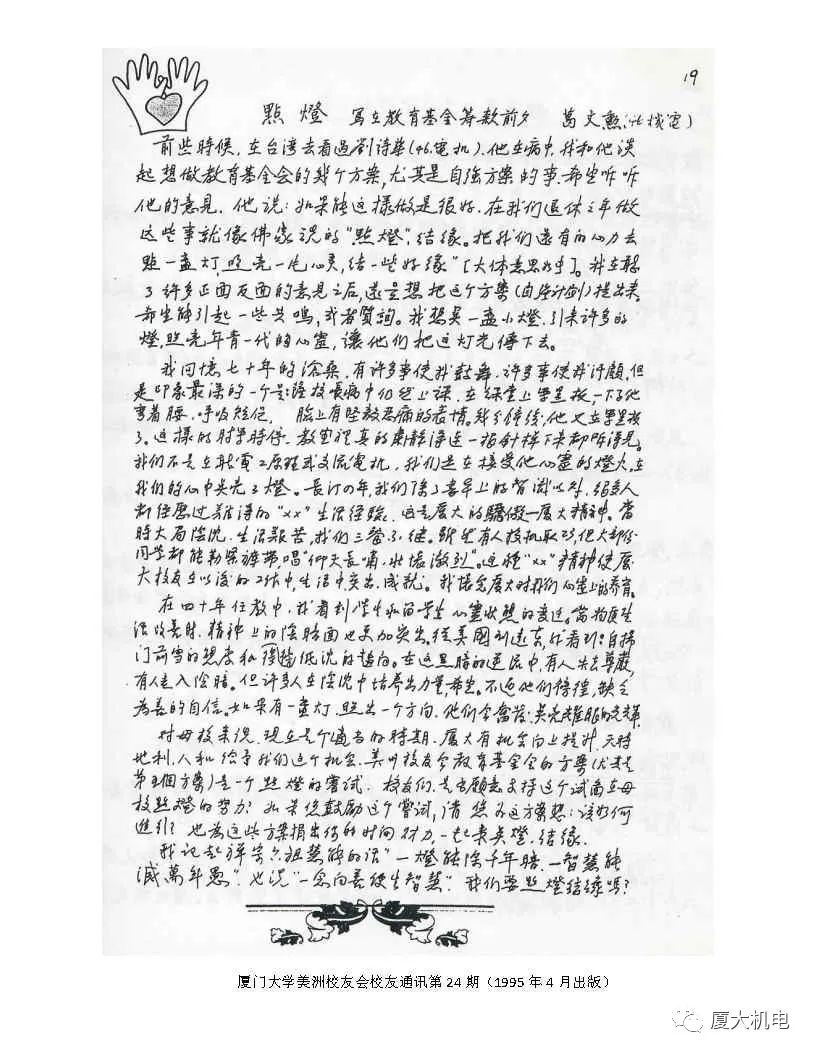 19
點燈 写在教育基金筹款前夕 葛文勲(46機電)
前些時候,在台湾去看過劉诗華(46.電机).他在病中.我和他谈
起想做教育基金会的幾个方案,尤其是自強方案的事.希望听听
他的意見.他说:如果能这樣做是很好.在我们退休之年做
这些事就像佛家说的"點燈",结缘。把我们還有的心力去
點一盏灯,照亮一片心灵,结一些好缘"[大体意思如此]。我在聽
了许多正面反面的意见之后,還是想把这个方案(由座计划)提出来.
希望能引起一些共鳴,或者質詢。我想是一盏小燈.引来许多的
燈,照亮年青一代的心靈,讓他们把这灯光傳下去。
我回憶七十年的滄桑.有许多事使我鼓舞.许多事使我汗顏,但
是印象最深的一个是:薩校長病中仍然上课.在课堂上黑板一下子他
弯着腰.呼吸短促, 臉上有堅毅忍痛的表情。幾分鐘後,他又在黑板
了.这樣的肘掌時停.教室裡真的肅静海连一指針掉下来都听得見。
我们不是在聽電工原理或交流電机.我们是在接受他心靈的燈火,在
我们的心中共亮了燈。長汀四年,我们除了喜早上的智識以外.很多人
都经歷过难得的"xx"生活经驗.这是厦大的驕傲—厦大精神。當
時大局陰沉.生活艱苦,我们三餐不继。雖然有人投机取巧,但大部份
同学都能勒緊褲带,唱"仰天長嘯.壮懷激烈"。这種"xx"精神使厦
大校友在以後的工作中,生活中,突出.成就。我感念厦大对我们心靈上的养育。
在四十年任教中.我看到学生和留学生心靈状態的变迁。當物质生
活改善时.精神上的陰暗面也更加突出.從美國到遠东,我看到:自掃
门前雪的態度和 低沉的趋向。在这黑暗的逆流中,有人失去尊嚴,
有人走入陰暗。但许多人在陰沉中培养出力量,希望。不过他们徬徨,缺乏
为善的自信。如果有一盏灯.照出一个方向.他们会奮發.
对母校来说.现在是个適当的時期.厦大有机会向上提升.天時
地利.人和给予我们这个机会.美州校友会教育基金会的方案(尤其是
第 個方案)是一个點燈的嘗试.校友们.是否願意支持这个试
校點燈的努力?如果您鼓励这个嘗试,请您为这方案想:该如何
進行?也為这些方案捐出你的时间.财力.一起来點燈.结缘.
我记起禅宗六祖慧能的话"一燈能除千年暗.一智慧能
滅萬年愚".也说"一念向善便生智慧".我们要點燈结缘嗎?
厦门大学美洲校友会校友通讯第 24 期(1995 年 4 月出版)
厦大机电